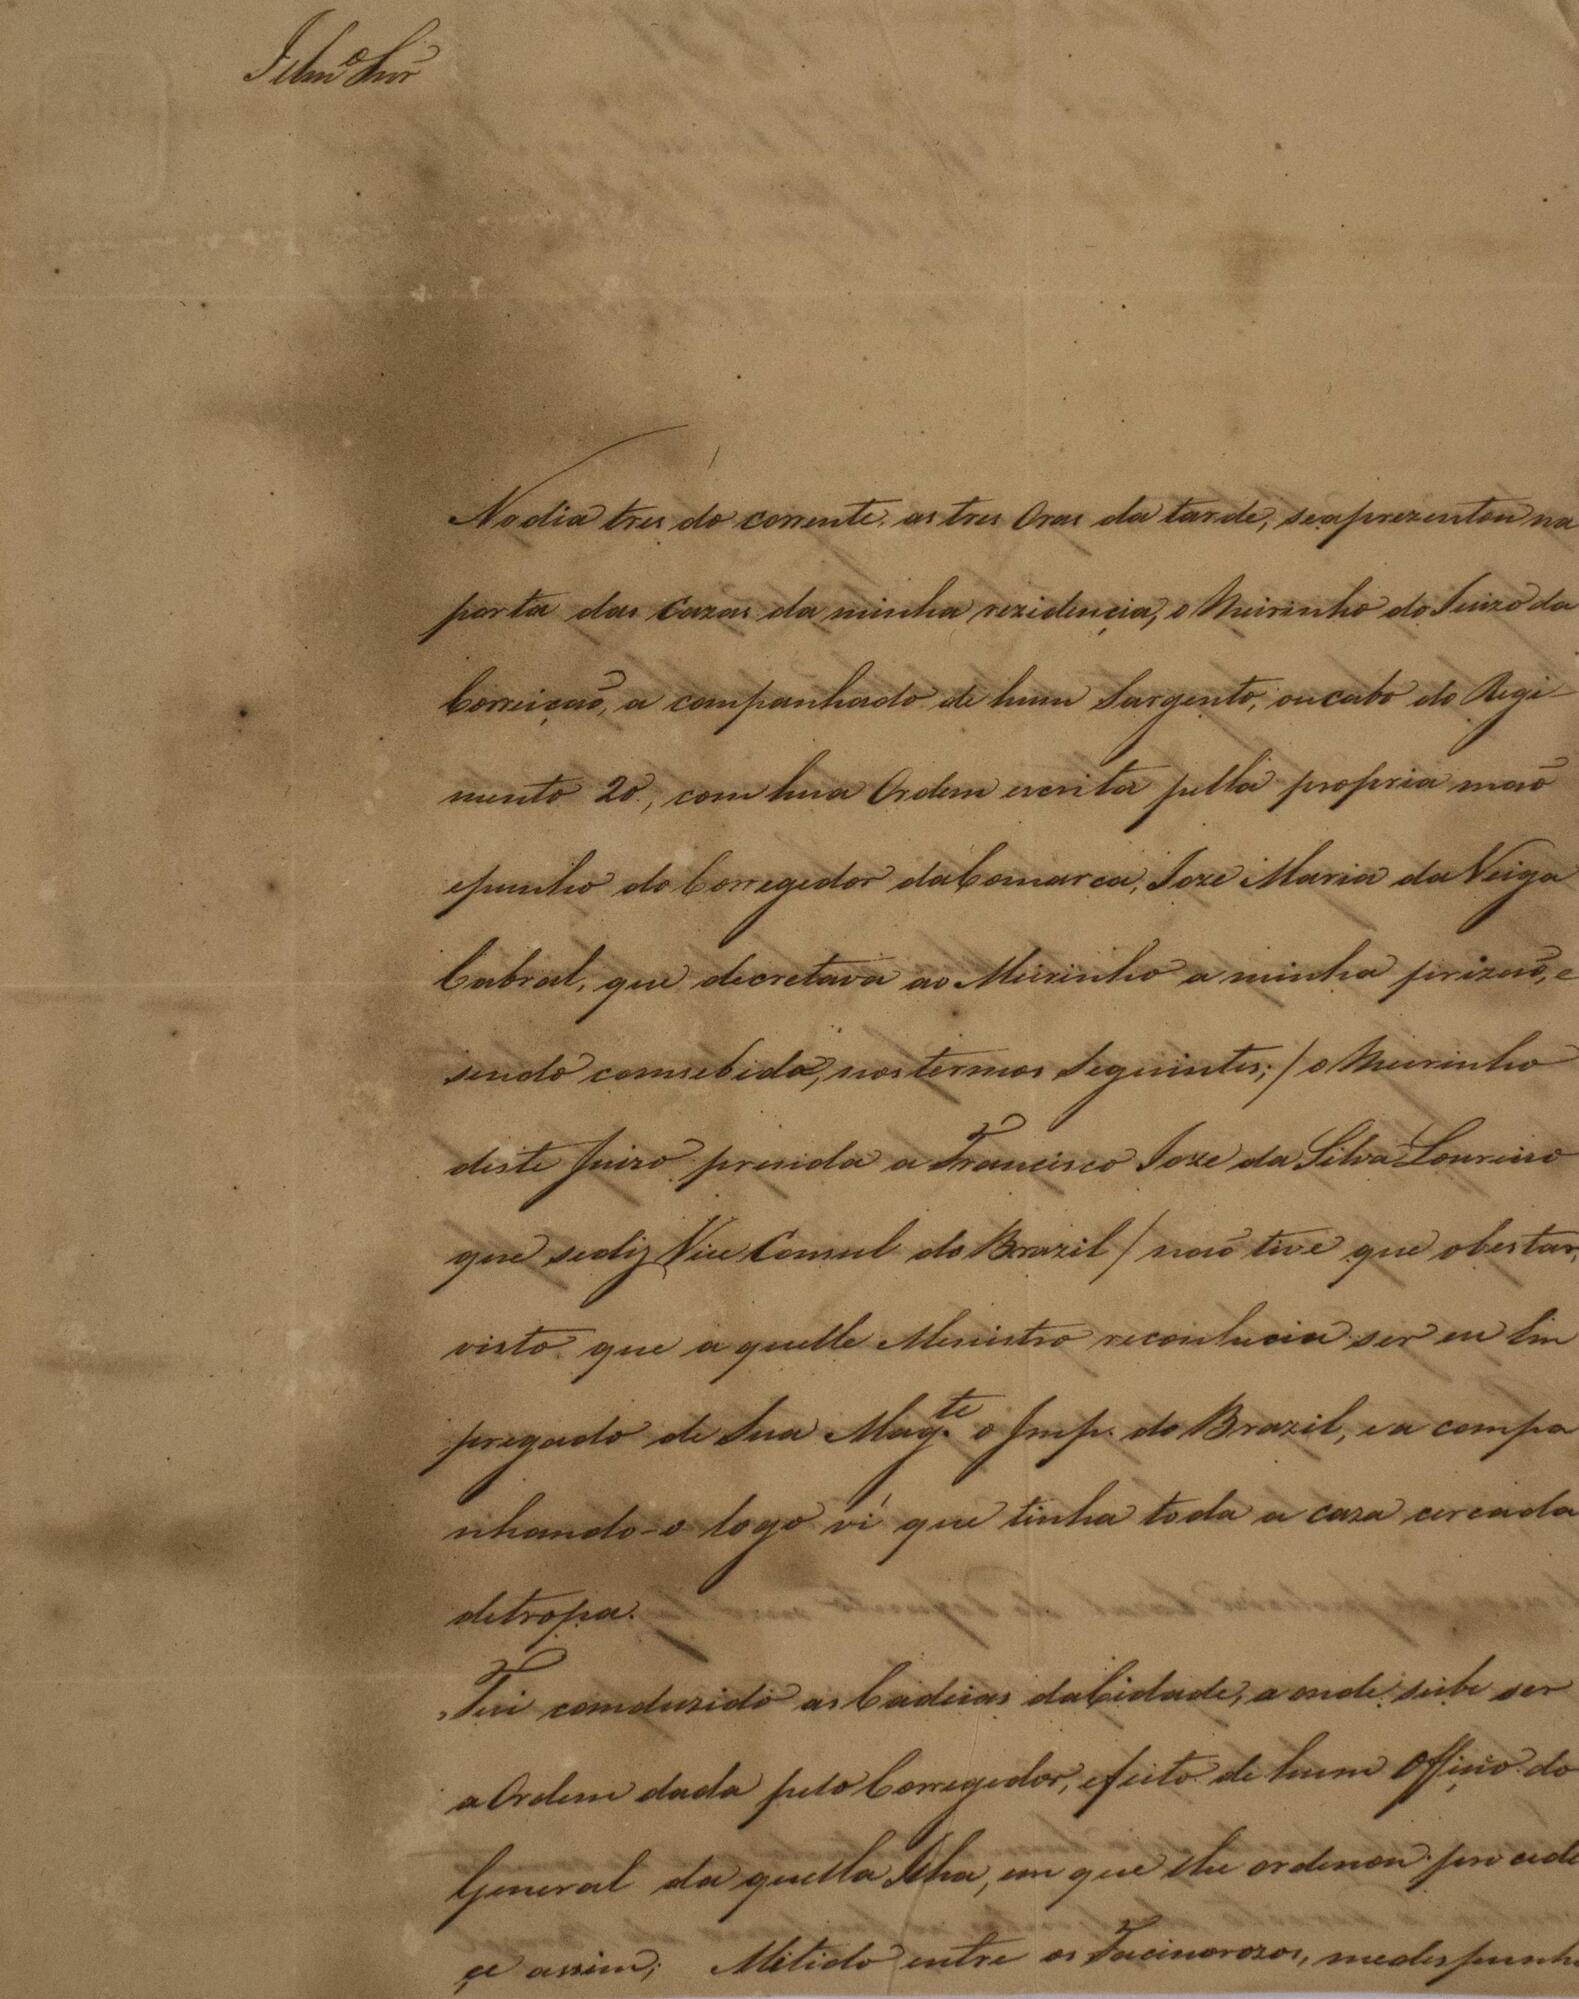 Illmo Snr
No dia tres do corrente, as tres Oras da tarde, se aprezentou na
porta das Cazas da minha rezidencia, o Meirinho do Juizo da
Correição, a companhado de hum Sargento, ou cabo do Regi-
mento 20, com hua Ordem escrita pella propria mão
e punho do Corregedor da Comarca, Joze Maria da Veiga
Cabral, que decretava ao Meirinho a minha prizão, e
sendo comsebida, nos termos Seguintes; / o Meirinho
deste Juizo prenda a Francisco Joze da Silva Loureiro
que se diz Vice Consul do Brazil / não tive que obestar,
visto que a quelle Menistro reconhecia ser eu Em
pregado de Sua Mag.te o Imp. do Brazil, e a compa
nhando-o logo vi que tinha toda a caza cercada
de tropa.
Fui comduzido as Cadeias da Cidade, a onde sube ser
a Ordem dada pelo Corregedor, efeito de hum Officio do
General da quella Ilha, em que lhe ordenou procede
çe assim; Metido entre os Facinorozos, me despunh